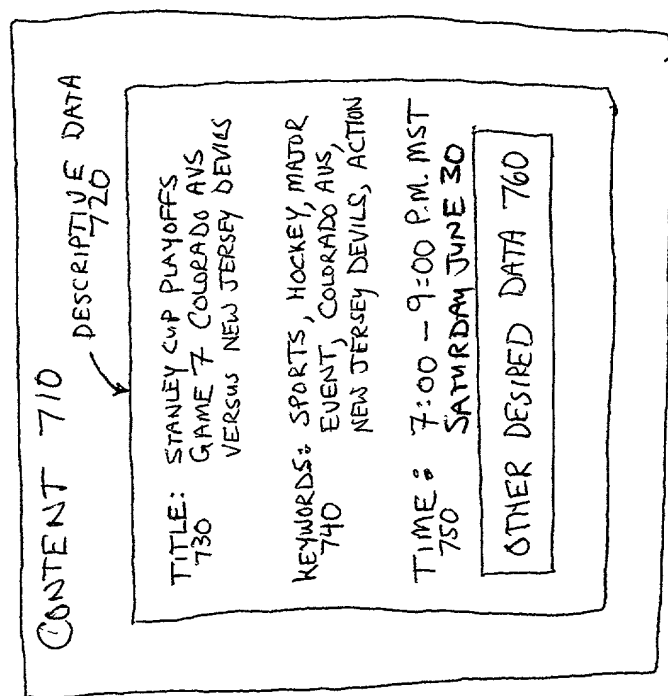 CONTENT 710
DESCRIPTIVE DATA
720
TITLE: STANLEY CUP PLAYOFFS
730 GAME 7 COLORADO AVS
VERSUS NEW JERSEY DEVILS
KEYWORDS: SPORTS, HOCKEY, MAJOR
740 EVENT, COLORADO AVS,
NEW JERSEY DEVILS, ACTION
TIME: 7:00 - 9:00 P.M. MST
750 SATURDAY JUNE 30
OTHER DESIRED DATA 760